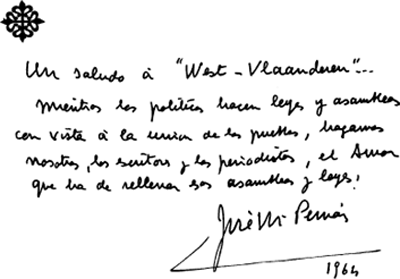 Un saludo á "West-Vlaanderen"...
mientras los políticos hacen leyes y asambleas
con vista á la union de los pueblos, hagamos
nosotros, los escritores y los periodistas, el Amor
que ha de rellenar esas asambleas y leyes!
José Mª Pemán
1964